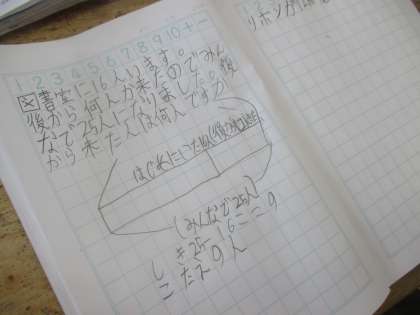 1 2 3 4 5 6 7 8 9 10 + −
図書室に16人います。
後から何人か来たのでみん
なで25人になりました。後
から来た人は何人ですか
はじめにいた16人
(みんなで25人)
しき25−16=9
こたえ9人
リボンが